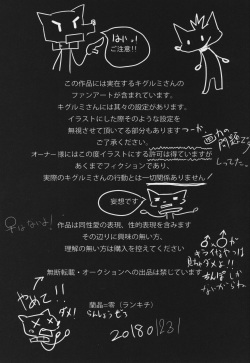 はいっ!
ご注意!!
この作品には実在するキグルミさんの
ファンアートが含まれています。
キグルミさんには其々の設定があります。
イラストにした際そのような設定を
無視させて頂いてる部分もあります
ご了承ください。
つーか
画が
問題で
してた。
オーナー様にはこの度イラストにする許可は得ていますが
あくまでフィクションであり、
実際のキグルミさんの行動とは一切関係ありません
妄想です
早はないよ!
作品は同性愛の表現、性的表現を含みます
その辺りに興味の無い方、
理解の無い方は購入を控えてください
♂♂が
キライなヤツは
ダメよ!!
無断転載・オークションへの出品は禁止しています
やめて!!
ダメ!
蘭晶=零(ランキチ)
らんしょうぜろ
201801231